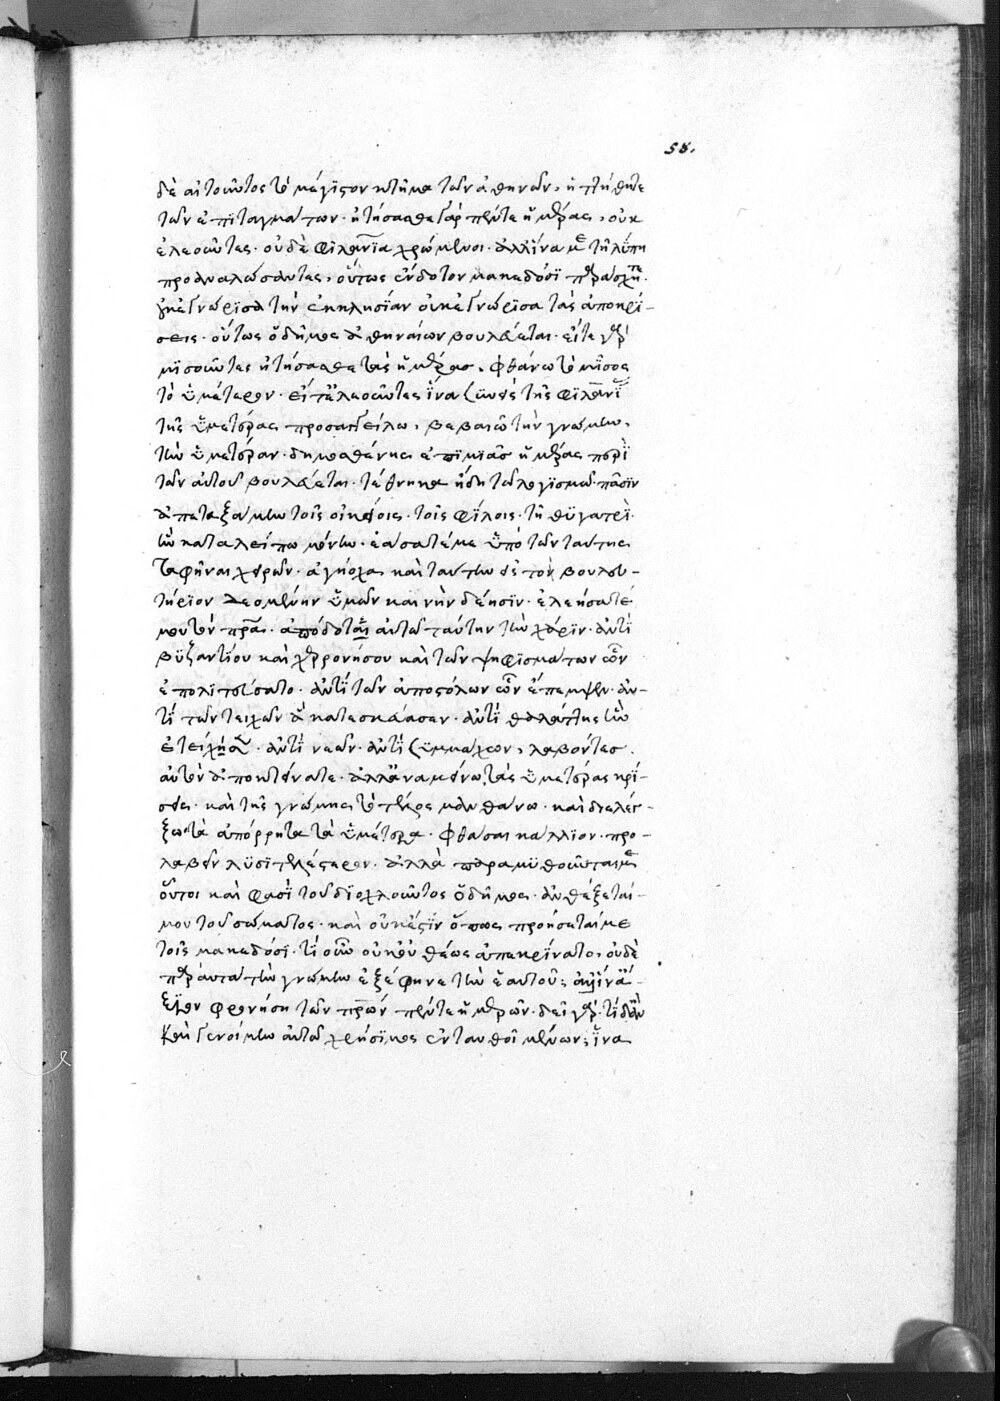 58.
δὲ αἰτοῦντος τὸ μέγιστον κτῆμα τῶν ἀθηνῶν, ἡττήθητε
τῶν ἐπιταγμάτων· ᾐτήσασθε γὰρ πέντε ἡμέρας, οὐκ
ἐλεοῦντες· οὐδὲ φιλανθρωπία χρώμενοι· ἀλλ' ἵνα με τῇ λύπῃ
προαναλώσαντες, οὕτως ἔκδοτον μακεδόσι παράσχητε·
ἐγνώρισα τὴν ἐκκλησίαν οὐκ ἐγνώρισα τὰς ἀποκρί-
σεις· οὕτως ὁ δῆμος ἀθηναίων βουλεύεται· εἴτε γὰρ
μισοῦντες ᾐτήσασθε τὰς ἡμέρας, φθάνω τὸ μῖσος
τὸ ὑμέτερον· εἴτ' ἐλεοῦντες ἵνα τῆς φιλανθρωπίας
τῆς ὑμετέρας προσαγγείλω, βεβαιῶ τὴν γνώμην,
τὴν ὑμετέραν· δημοσθένης ἐπὶ μιᾶς ἡμέρας περὶ
τῶν αὐτοῦ βουλεύεται· τέθνηκα ἤδη τῷ λογισμῷ· πᾶσιν
ἀπεταξάμην τοῖς οἰκείοις· τοῖς φίλοις· τῇ θυγατρὶ
ἣν καταλείπω μόνην· ἐάσατέ με ὑπὸ τῶν ταύτης
ταφῆναι χειρῶν· ἀγήοχα καὶ ταύτην εἰς τὸ βουλευ-
τήριον δεομένην ὑμῶν καινὴν δέησιν· ἐλεήσατέ
μου τὸν πατέρα· ἀπόδοτε αὐτῷ ταύτην τὴν χάριν· ἀντὶ
βυζαντίου καὶ χερρονήσου καὶ τῶν ψηφισμάτων ὧν
ἐπολιτεύσατο· ἀντὶ τῶν ἀποστόλων ὧν ἔπεμψεν· ἀν-
τὶ τῶν τειχῶν ἃ κατεσκεύασεν· ἀντὶ θαλάττης ἣν
ἐτείχισεν· ἀντὶ νεῶν· ἀντὶ συμμάχων, λαβόντες
αὐτὸν ἀποκτείνατε· ἀλλ' ἀναμείνω τὰς ὑμετέρας κρί-
σεις· καὶ τῆς γνώμης τὸ τέλος μανθάνω· καὶ διελέγ-
ξω τὰ ἀπόρρητα τὰ ὑμέτερα· φθάσαι κάλλιον· προ-
λαβεῖν λυσιτελέστερον· ἀλλὰ παραμυθοῦνταί με
οὗτοι καὶ φασὶ τοῦ διοχλοῦντος ὁ δῆμος· ἀνθέξεταί
μου τοῦ σώματος· καὶ οὐκ ἔστιν ὅπως προήσεταί με
τοῖς μακεδόσι· τί οὖν οὐκ εὐθέως ἀπεκρίνατο, οὐδὲ
παραυτὰ τὴν γνώμην ἐξέφηνε τὴν ἑαυτοῦ;
φρονήσῃ τῶν πέντε ἡμερῶν· δεῖ γάρ· τί δ' ἂν
καὶ γενοίμην αὐτῷ χρήσιμος ἐνταυθοῖ μένων; ἵνα